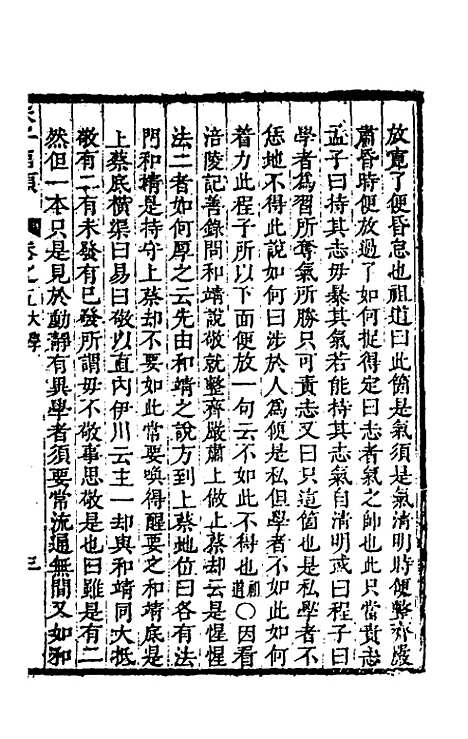 放寬了便昏怠也祖道曰此箇是氣須是氣清明時便整齊嚴
肅昏時便放過了如何捉得定曰志者氣之帥也此只當責志
孟子曰持其志毋暴其氣若能持其志氣自清明或曰程子曰
學者爲習所奪氣所勝只可責志又曰只這箇也是私學者不
恁地不得此說如何曰涉於人爲便是私但學者不如此如何
着力此程子所以下面便放一句云不如此不得也祖道○因看
涪陵記善錄問和靖說敬就整齊嚴肅上做上蔡却云是惺惺
法二者如何厚之云先由和靖之說方到上蔡地位曰各有法
門和靖是持守上蔡却不要如此常要喚得醒要之和靖底是
上蔡底橫渠曰易曰敬以直內伊川云主一却與和靖同大抵
敬有二有未發有已發所謂毋不敬事思敬是也曰雖是有二
然但一本只是見於動靜有異學者須要常流通無間又如和
卷之五大學
三